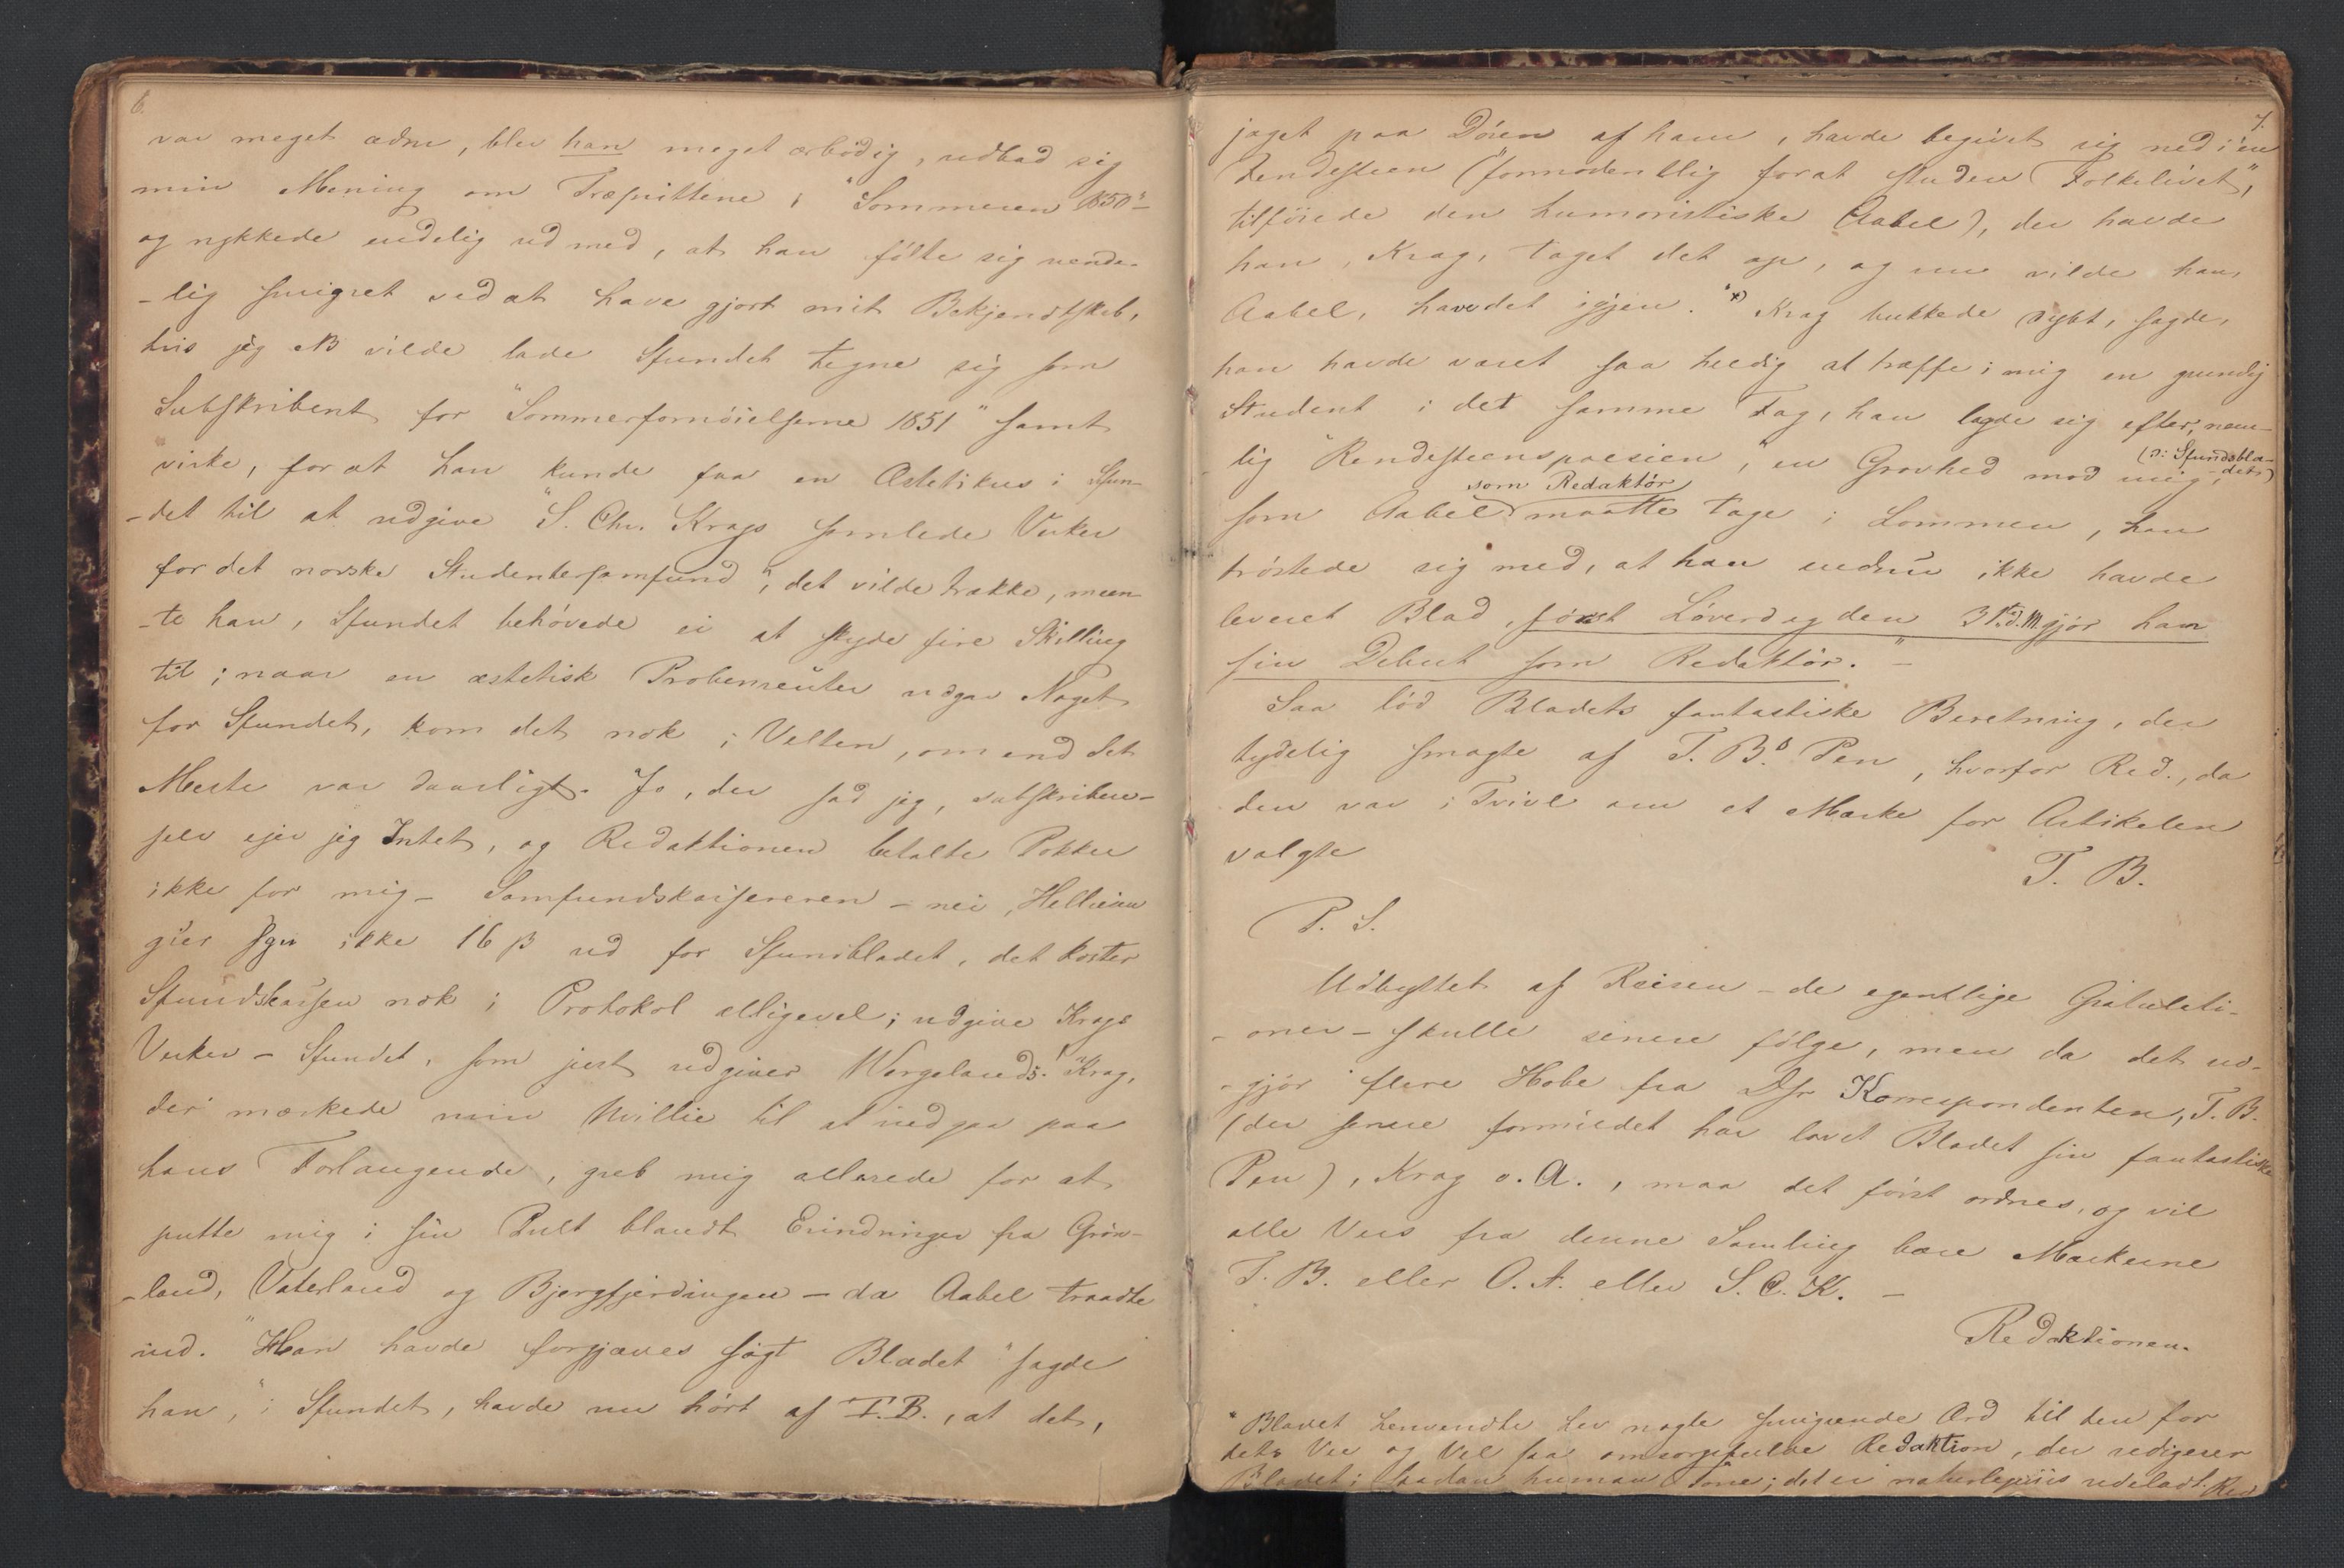 6.
var meget ædru, blev han meget ærbødig, udbad sig
min Mening om Træsnittene i "Sommeren 1850"
og rykkede endelig ud med, at han følte sig uende-
-lig smigret ved at have gjort mit Bekjendtskab,
hvis jeg NB vilde lade Sfundet tegne sig som
Subskribent for "Sommerfornøielserne 1851" samt
virke, for at han kunde faa en Æstetikus i Sfun-
-det til at udgive "S. Chr. Krags samlede Værker
for det norske Studentersamfund", det vilde trække, meen-
-te han, Sfundet behøvede ei at skyde fire Skilling
til; naar en æstetisk Probenreuter udgav Noget
for Sfundet, kom det nok i Velten, om end det
Meste var daarligt. Jo, der sad jeg, subskribere-
selv eier jeg Intet, og Redaktionen betalte Pokker
ikke for mig – Samfundskasjereren – nei, Helliesen
gier sgu ikke 16 ß ud for Sfunsbladet, det koster
Sfundskassen nok i Protokol alligevel; udgive Krags
Verker – Sfundet, som just udgiver Wergelands! Krag,
der mærkede min Uvillie til at indgaa paa
hans Forlangende, greb mig allerede for at
putte mig i sin Pult blandt Erindringer fra Grøn-
-land, Vaterland og Bjergfjerdingen – da Aabel traadte
ind. "Han havde forgjæves søgt Bladet" sagde
han, "i Sfundet, havde nu hørt af T. B., at det,
7.
jaget paa Døren af ham, havde begivet sig ned i en
Rendesteen (formodentlig forat studere Folkelivet",
tilføiede den humoristiske Aabel), der havde
han, Krag, taget det op, og nu vilde han,
Aabel, have det igjen." *) Krag bukkede dybt, sagde,
han havde været saa heldig at træffe i mig en grundig
Student i det samme Fag, han lagde sig efter, nem-
lig "Rendesteenspoesien", en Grovhed mod mig, (ɔ: Sfundsbla-
-det)
som Aabel som Redaktør maatte tage i Lommen, han
trøstede sig med, at han endnu ikke havde
leveret Blad, først Løverdag den 31te d. M. gjør han
sin Debut som Redaktør." –
Saa lød Bladets fantastiske Beretning, der
tydelig smagte af T. B.s Pen, hvorfor Red., da
den var i Tvivl om et Mærke for Artikelen
valgte
T. B.
P. S.
Udbyttet af Reisen – de egentlige Gratulati-
-oner – skulle senere følge, men da det ud-
-gjør flere Hobe fra Dhr Korrespondenten, T. B.
(der senere formildet har lavet Bladet sin fantastiske
Pen), Krag o. A., maa det først ordnes, og vil
alle Vers fra denne Samling bære Mærkerne
T. B. eller O. A. eller S. C. K. –
Redaktionen.
* Bladet henvendte her nogle smigrende Ord til den for
dets Vee og Vel saa omsorgsfulde Redaktion, der redigerer
Bladet i saadan human Tone; det er naturligviis udeladt. Red